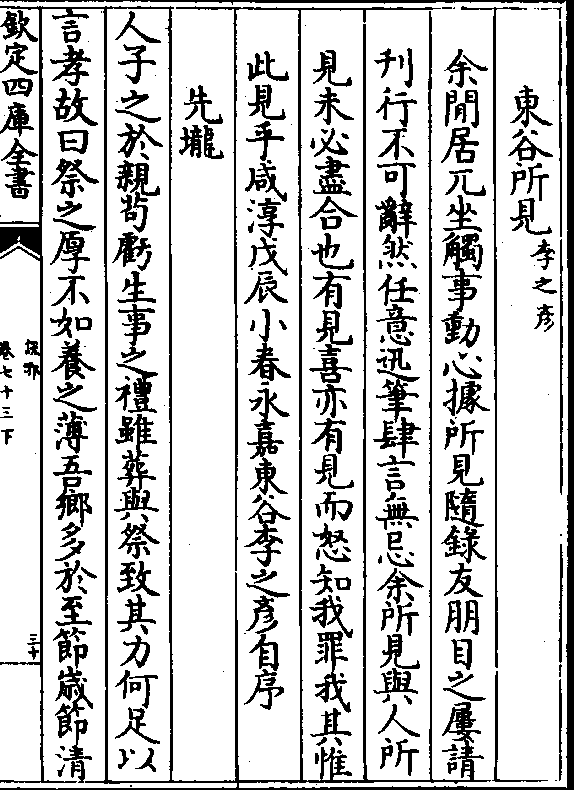 東谷所見 李之彥
余閒居兀坐觸事動心據所見隨錄友朋目之屢請
刋行不可辭然任意迅筆肆言無忌余所見與人所
見未必盡合也有見喜亦有見而怒知我罪我其惟
此見乎咸淳戊辰小春永嘉東谷李之彥自序
先壠
人子之於親茍虧生事之禮雖葬與祭致其力何足以
言孝故曰祭之厚不如養之薄吾鄉多於至節歲節清
欽定四庫全書
說郛
卷七十三下
三十